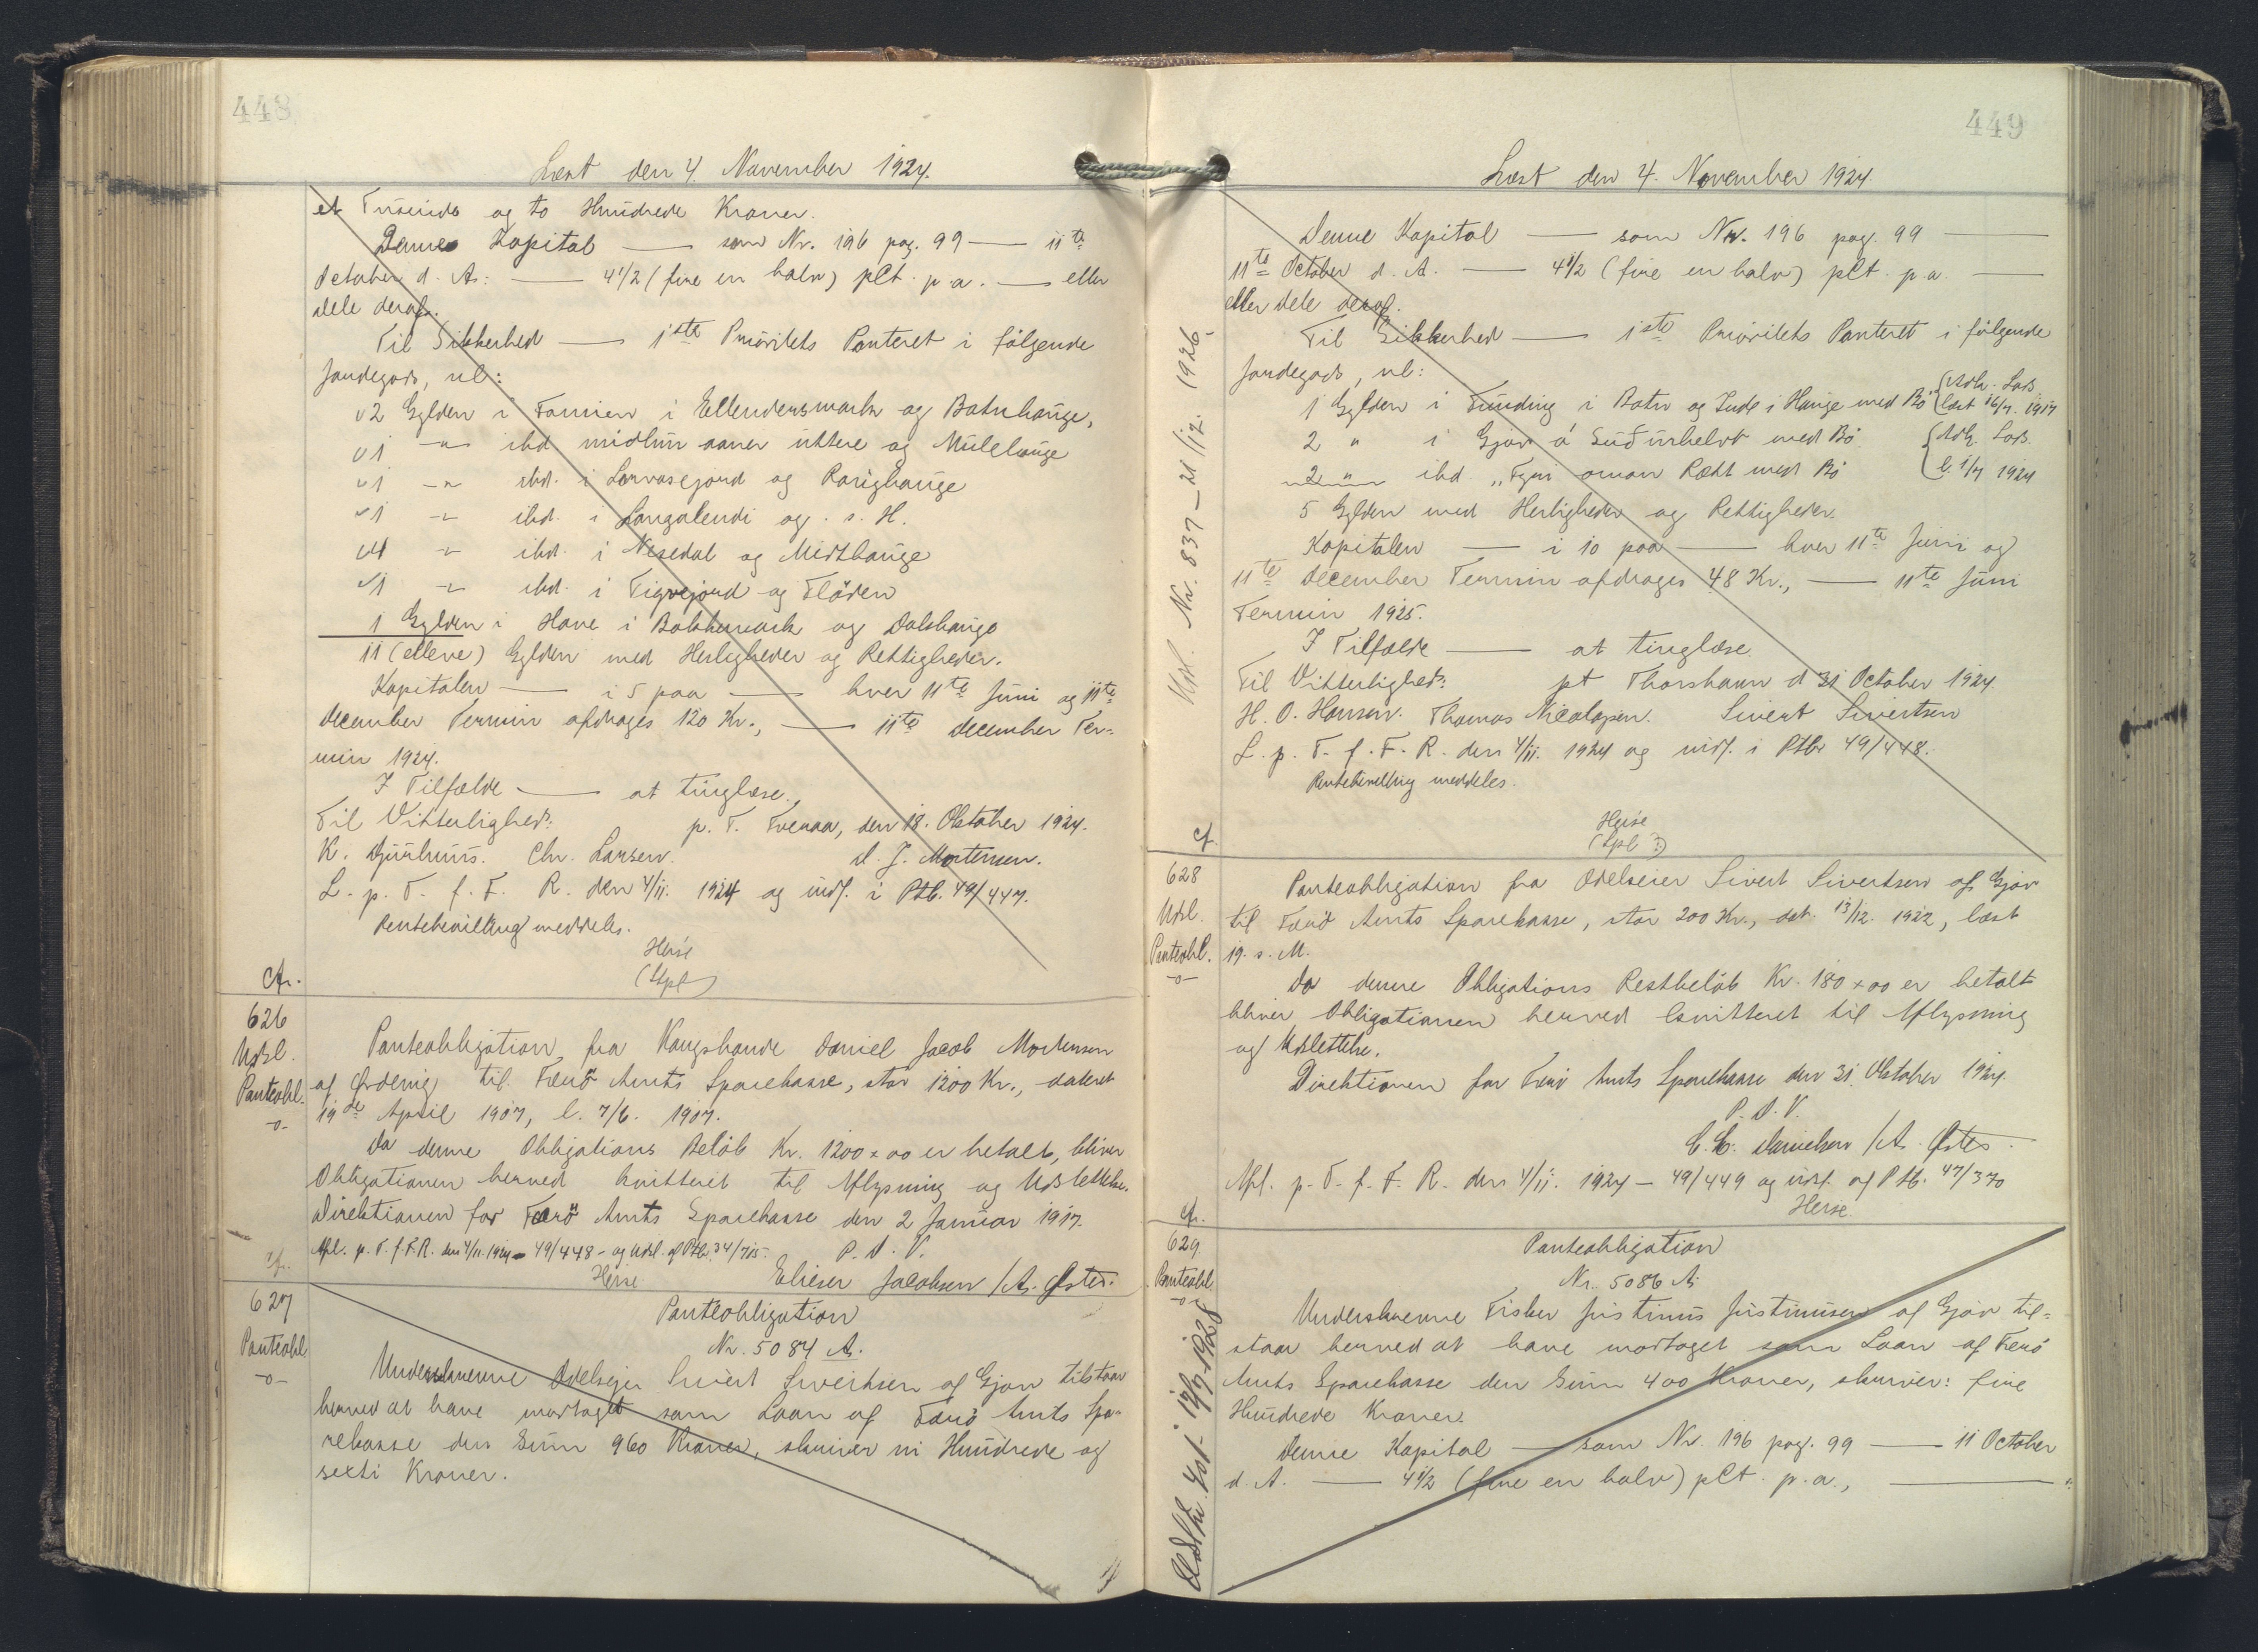 448
Læst den 4. November 1924.
et Tusinde og to Hundrede Kroner.
Denne Kapital — som Nr. 196 pag. 99 — 11te
October d. A. — 4 1/2 (fire en halv) pCt. p. a. — eller
dele deraf.
Til Sikkerhed — 1ste Prioritets Panteret i følgende
Jordegods, nl:
2 Gylden i Famien i Ellendersmark og Botnhauge,
1 -"- ibd midlun aaner uttere og Mulelauge
1 -"- ibd. i Lorvasejord og Rarighauge
1 -"- ibd. i Langalendi og s. H.
4 -"- ibd. i Nesedal og Midthauge
1 -"- ibd. i Tigvejord og Fløren
1 Gylden i Hove i Bakkemark og Dalshauge
11 (elleve) Gylden med Herligheder og Rettigheder.
Kapitalen — i 5 paa — hver 11te Juni og 11te
December Termin afdrages 120 Kr., — 11te December Ter-
min 1924.
I Tilfælde — at tinglæse.
Til Vitterlighed: p. T. Tveraa, den 18. Oktober 1924.
K. Djurhuus. Chr. Larsen. D. J. Mortensen.
L. p. T. f. F. R. den 4/11. 1924 og indf. i Ptb. 49/447.
Rentebevilling meddeles.
Heise
(Spl)
cfr.
626
Udsl.
Panteobl.
-o-
Panteobligation fra Kongsbonde Daniel Jacob Mortensen
af Ørderig til Færö Amts Sparekasse, stor 1200 Kr., dateret
19de April 1907, l. 7/6. 1907.
Da denne Obligations Beløb Kr. 1200 x 00 er betalt, bliver
Obligationen herved kvitteret til Aflysning og Udslettelse.
Direktionen for Færö Amts Sparekasse den 2 Januar 1917.
Afl. p. T. f. F. R. den 4/11. 1924 - 49/448 - og Udsl. af Ptb. 34/715. P. D. V.
Heise Elieser Jacobsen / A. Øster.
cfr.
627
Panteobl.
-o-
Panteobligation
Nr. 5084 A.
Underskrevne Odelsejer Sivert Sivertsen af Gjov tilstaar
herved at have modtaget som Laan af Færö Amts Spa-
rekasse den Sum 960 Kroner, skriver ni Hundrede og
sexti Kroner.
449
Læst den 4. November 1924
Denne Kapital — som Nr. 196 pag. 99 —
11te October d. A. — 4 1/2 (fire en halv) pCt. p. a. —
eller dele deraf.
Til Sikkerhed — 1ste Prioritets Panteret i følgende
Jordegods, nl:
1 Gylden i Funding i Botn og Inde i Hauge med Bø {Adk. Lods. læst 16/7. 1917
2 " i Gjov á Suðurhelvt med Bø {Adk. Lods.
2 " ibd. "Fyri oman Rætt med Bø {l. 1/7 1924
5 Gylden med Herligheder og Rettigheder.
Kapitalen — i 10 paa — hver 11te Juni og
11te December Termin afdrages 48 Kr., — 11te Juni
Termin 1925.
I Tilfælde — at tinglæse.
Til Vitterlighed: pt Thorshavn d 31 October 1924.
H. O. Hansen. Thomas Nicolajsen. Sivert Sivertsen
L. p. T. f. F. R. den 4/11. 1924 og indf. i Ptb 49/448.
Rentebevilling meddeles.
Heise
(Spl)
Udsl. Nr. 837 - 21/12. 1926.
cf.
628
Udsl.
Panteobl.
-o-
Panteobligation fra Odelseier Sivert Sivertsen af Gjov
til Færö Amts Sparekasse, stor 200 Kr., dat. 13/12. 1922, læst
19. s. M.
Da denne Obligations Restbeløb Kr. 180 x 00 er betalt
bliver Obligationen herved kvitteret til Aflysning
og Udslettelse.
Direktionen for Færö Amts Sparekasse den 31. Oktober 1924.
P. D. V.
C. C. Danielsen / A. Øster.
Afl. p. T. f. F. R. den 4/11. 1924 - 49/449 og udsl. af Ptb. 47/370
Heise.
cfr.
629
Panteobl.
-o-
Panteobligation
Nr. 5086 A.
Underskrevne Fisker Justinus Justinusen af Gjov til-
staar herved at have modtaget som Laan af Færö
Amts Sparekasse den Sum 400 Kroner, skriver: fire
Hundrede Kroner.
Denne Kapital — som Nr. 196 pag. 99 — 11 October
d. A. — 4 1/2 (fire en halv) pCt. p. a., —